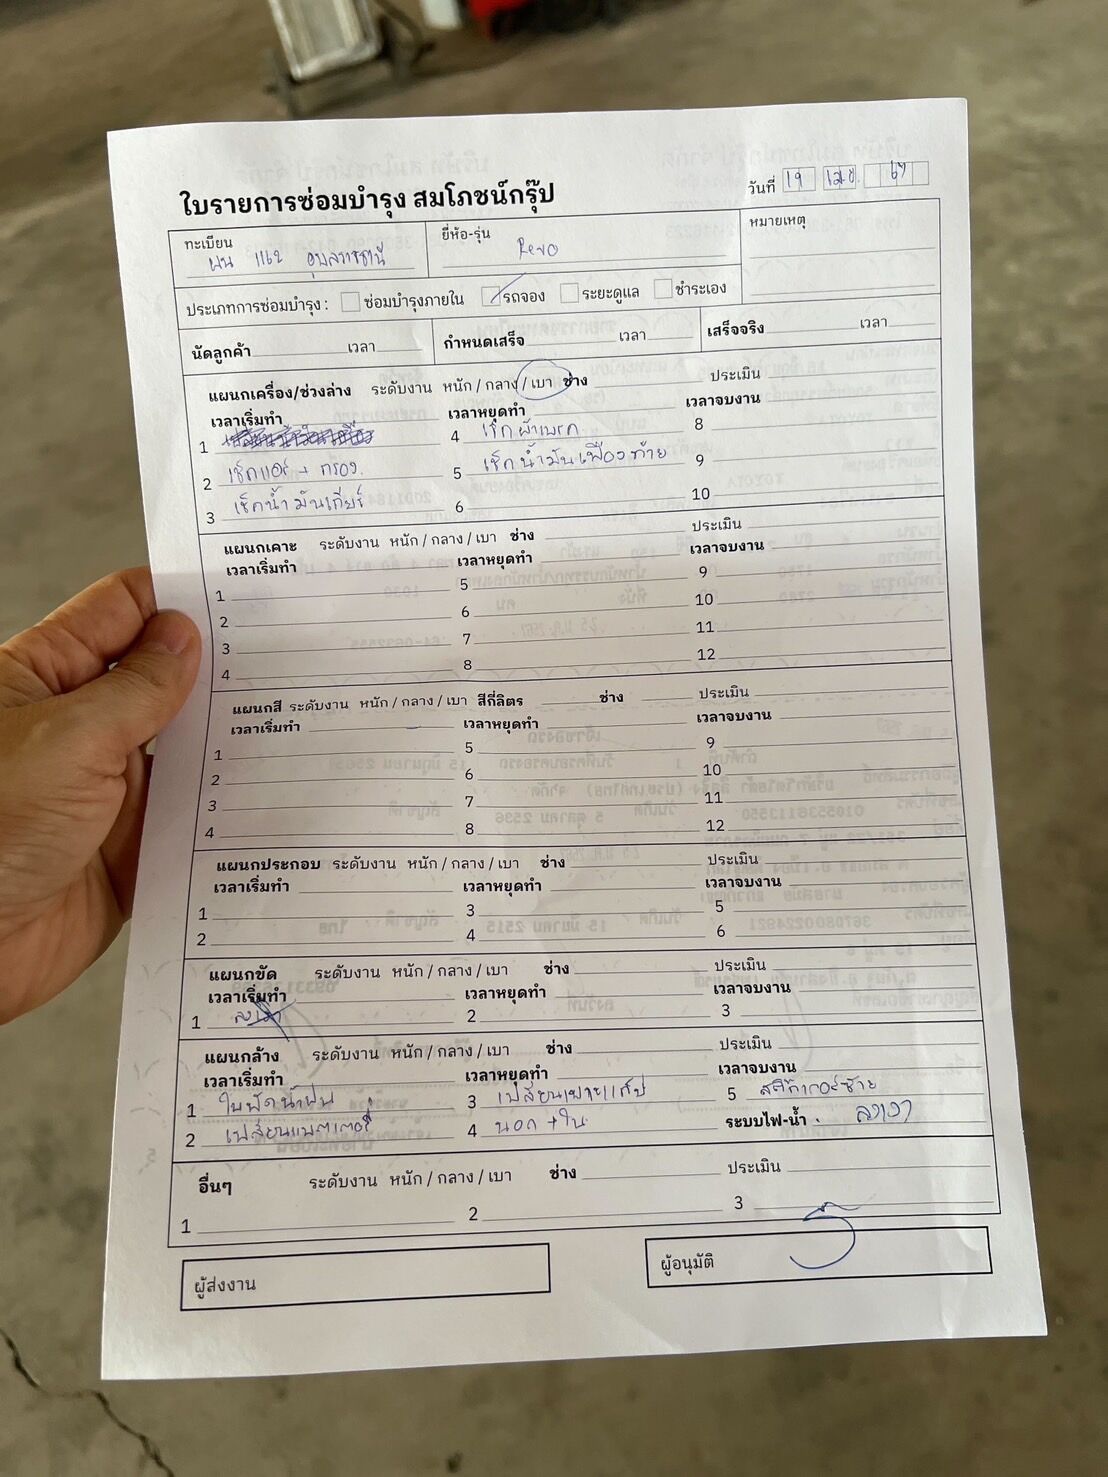 ใบรายการซ่อมบำรุง สมโภชน์กรุ๊ป
วันที่ 19 เมย. 67
ทะเบียน ผน 1162 อุบลราชธานี
ยี่ห้อ-รุ่น Revo
หมายเหตุ
ประเภทการซ่อมบำรุง : ซ่อมบำรุงภายใน รถจอง ระยะดูแล ชำระเอง
นัดลูกค้า เวลา กำหนดเสร็จ เวลา เสร็จจริง เวลา
แผนกเครื่อง/ช่วงล่าง ระดับงาน หนัก / กลาง / เบา ช่าง ประเมิน
เวลาเริ่มทำ เวลาหยุดทำ เวลาจบงาน
1 4 เช็กผ้าเบรก 8
2 เช็กแอร์ + กรอง 5 เช็กน้ำมันเฟืองท้าย 9
3 เช็กน้ำมันเกียร์ 6 10
แผนกเคาะ ระดับงาน หนัก / กลาง / เบา ช่าง ประเมิน
เวลาเริ่มทำ เวลาหยุดทำ เวลาจบงาน
1 5 9
2 6 10
3 7 11
4 8 12
แผนกสี ระดับงาน หนัก / กลาง / เบา สีกี่ลิตร ช่าง ประเมิน
เวลาเริ่มทำ เวลาหยุดทำ เวลาจบงาน
1 5 9
2 6 10
3 7 11
4 8 12
แผนกประกอบ ระดับงาน หนัก / กลาง / เบา ช่าง ประเมิน
เวลาเริ่มทำ เวลาหยุดทำ เวลาจบงาน
1 3 5
2 4 6
แผนกขัด ระดับงาน หนัก / กลาง / เบา ช่าง ประเมิน
เวลาเริ่มทำ เวลาหยุดทำ เวลาจบงาน
1 2 3
แผนกล้าง ระดับงาน หนัก / กลาง / เบา ช่าง ประเมิน
เวลาเริ่มทำ เวลาหยุดทำ เวลาจบงาน
1 ใบพัดน้ำฝน 3 เปลี่ยนเบาะแค๊ป 5 สติ๊กเกอร์ซ้าย
2 เปลี่ยนแบตเตอรี่ 4 นอก + ใน ระบบไฟ-น้ำ
อื่นๆ ระดับงาน หนัก / กลาง / เบา ช่าง ประเมิน
1 2 3
ผู้ส่งงาน
ผู้อนุมัติ